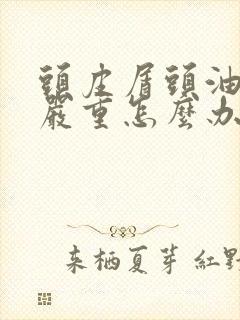 頭皮屑頭油
嚴重怎麼办
来栖夏芽 紅野